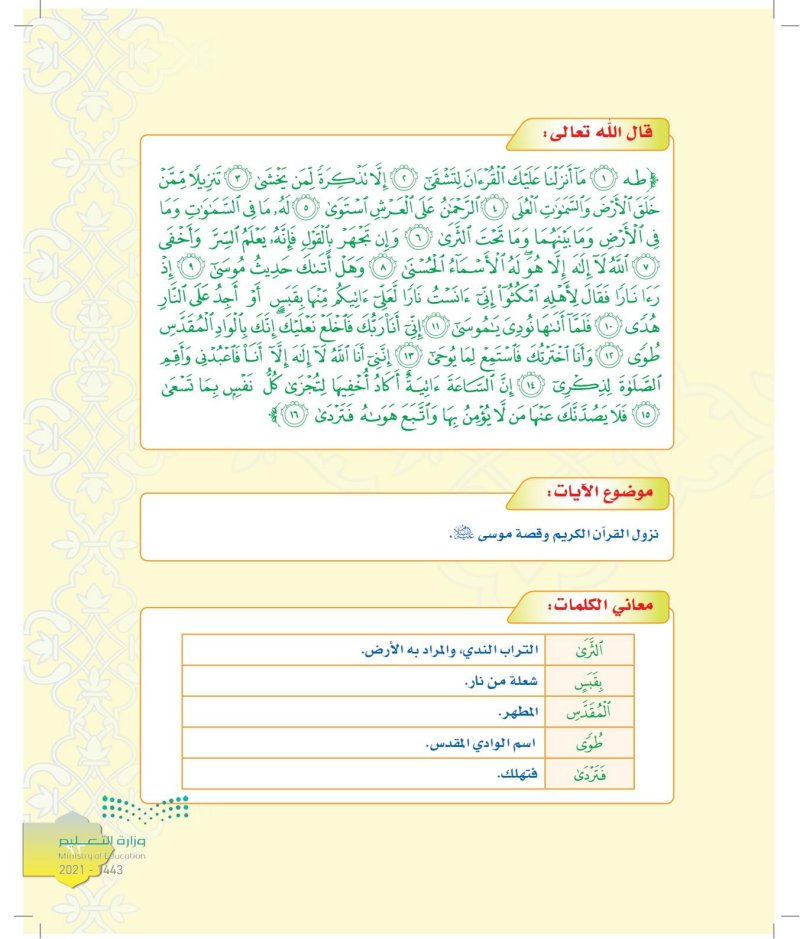 قال الله تعالى:
﴿طه ١ مَآ أَنزَلْنَا عَلَيْكَ ٱلْقُرْءَانَ لِتَشْقَىٰٓ ٢ إِلَّا تَذْكِرَةً لِّمَن يَخْشَىٰ ٣ تَنزِيلًا مِّمَّنْ
خَلَقَ ٱلْأَرْضَ وَٱلسَّمَٰوَٰتِ ٱلْعُلَى ٤ ٱلرَّحْمَٰنُ عَلَى ٱلْعَرْشِ ٱسْتَوَىٰ ٥ لَهُۥ مَا فِى ٱلسَّمَٰوَٰتِ وَمَا
فِى ٱلْأَرْضِ وَمَا بَيْنَهُمَا وَمَا تَحْتَ ٱلثَّرَىٰ ٦ وَإِن تَجْهَرْ بِٱلْقَوْلِ فَإِنَّهُۥ يَعْلَمُ ٱلسِّرَّ وَأَخْفَى
٧ ٱللَّهُ لَآ إِلَٰهَ إِلَّا هُوَۖ لَهُ ٱلْأَسْمَآءُ ٱلْحُسْنَىٰ ٨ وَهَلْ أَتَىٰكَ حَدِيثُ مُوسَىٰٓ ٩ إِذْ
رَءَا نَارًا فَقَالَ لِأَهْلِهِ ٱمْكُثُوٓا۟ إِنِّىٓ ءَانَسْتُ نَارًا لَّعَلِّىٓ ءَاتِيكُم مِّنْهَا بِقَبَسٍ أَوْ أَجِدُ عَلَى ٱلنَّارِ
هُدًى ١٠ فَلَمَّآ أَتَىٰهَا نُودِىَ يَٰمُوسَىٰٓ ١١ إِنِّىٓ أَنَا۠ رَبُّكَ فَٱخْلَعْ نَعْلَيْكَۖ إِنَّكَ بِٱلْوَادِ ٱلْمُقَدَّسِ
طُوًى ١٢ وَأَنَا ٱخْتَرْتُكَ فَٱسْتَمِعْ لِمَا يُوحَىٰٓ ١٣ إِنَّنِىٓ أَنَا ٱللَّهُ لَآ إِلَٰهَ إِلَّآ أَنَا۠ فَٱعْبُدْنِى وَأَقِمِ
ٱلصَّلَوٰةَ لِذِكْرِىٓ ١٤ إِنَّ ٱلسَّاعَةَ ءَاتِيَةٌ أَكَادُ أُخْفِيهَا لِتُجْزَىٰ كُلُّ نَفْسٍۭ بِمَا تَسْعَىٰ
١٥ فَلَا يَصُدَّنَّكَ عَنْهَا مَن لَّا يُؤْمِنُ بِهَا وَٱتَّبَعَ هَوَىٰهُ فَتَرْدَىٰ ١٦﴾
موضوع الآيات:
نزول القرآن الكريم وقصة موسى عليه السلام.
معاني الكلمات:
ٱلثَّرَىٰ التراب الندي، والمراد به الأرض.
بِقَبَسٍ شعلة من نار.
ٱلْمُقَدَّسِ المطهر.
طُوًى اسم الوادي المقدس.
فَتَرْدَىٰ فتهلك.
وزارة التعليم
Ministry of Education
2021 - 1443